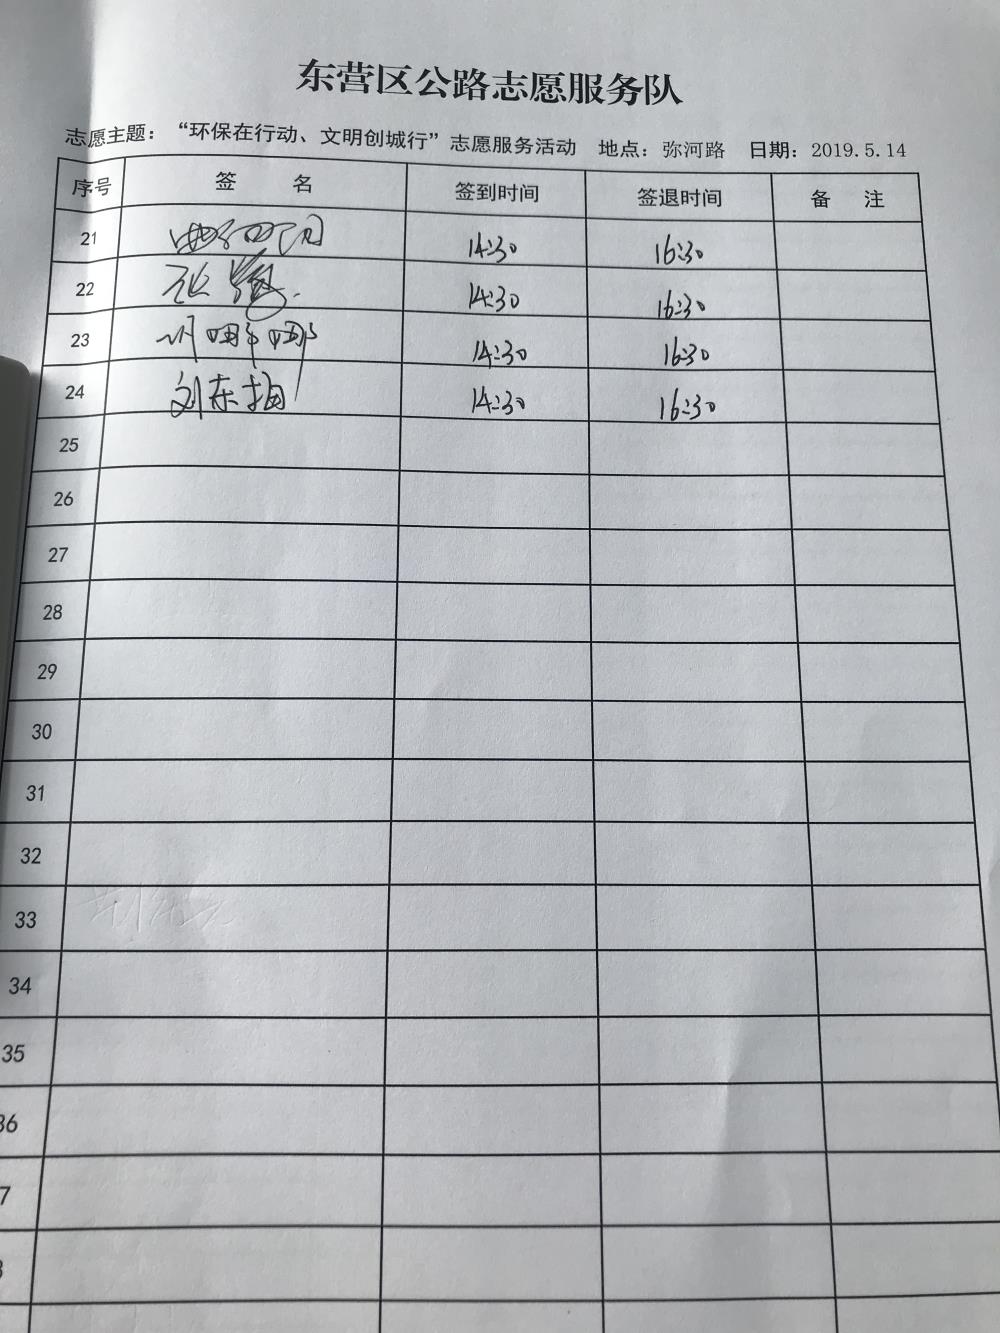 东营区公路志愿服务队
志愿主题：“环保在行动、文明创城行”志愿服务活动 地点：弥河路 日期：2019.5.14
序号 签 名 签到时间 签退时间 备 注
21 14:30 16:30
22 张 14:30 16:30
23 娜娜 14:30 16:30
24 刘东梅 14:30 16:30
25
26
27
28
29
30
31
32
33
34
35
36
7